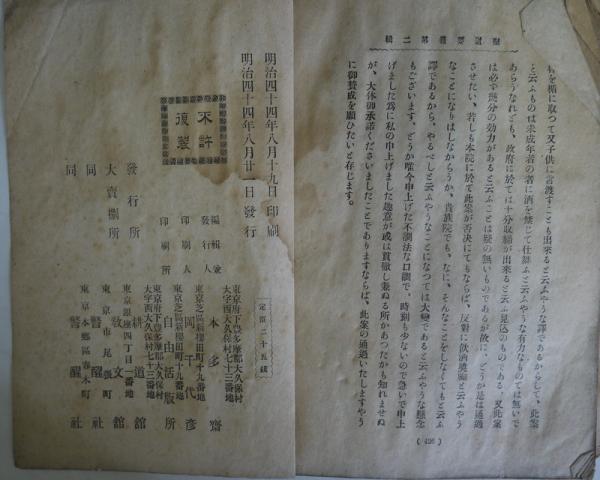 權を楯に取つて又子供に言渡すことも出來ると云ふやうな譯であるからして、此案
と云ふものは未成年者の者に酒を禁じて仕舞ふと云ふやうな有力なものでは無いで
あらうなれども、政府に於ては十分取締が出來ると云ふ見込のものである、又此案
は必ず幾分の効力があると云ふことは疑の無いものであるが故に、どうか是は通過
させたい、若しも本院に於て此案が否決にてもならば、反對に飲酒奬勵と云ふやう
なことになりはしなからうか、貴族院でも、なに、そんなことをしなくてもと云ふ
譯であるから、やるべしと云ふやうなことになつては大變であると云ふやうな懸念
もございます、どうか唯今申上げた不調法な口調で、時刻も少ないので急いで申上
げました爲に私の申上げました趣意が或は貫徹し兼ぬる所かあつたかも知れませぬ
が、大体御承諾くださいましたことでありますならば、此案の通過いたしますやう
に御賛成を願ひたいと存じます。
( 426 )
明治四十四年八月十九日印刷
明治四十四年八月廿一日發行
不許
復製
定價二十五錢
編輯兼
發行人
東京府下豊多摩郡大久保村
大字西大久保村七十三番地
本多齋
印刷人
東京芝區新櫻田町十九番地
岡千代彦
印刷所
東京芝區新櫻田町十九番地
自由活版所
發行所
東京府下豊多摩郡大久保村
大字西大久保村七十三番地
耕道館
大賣捌所
東京銀座四丁目一番地
教文館
同
東京市尾張町
警醒社
同
東京本郷區春木町
警醒社